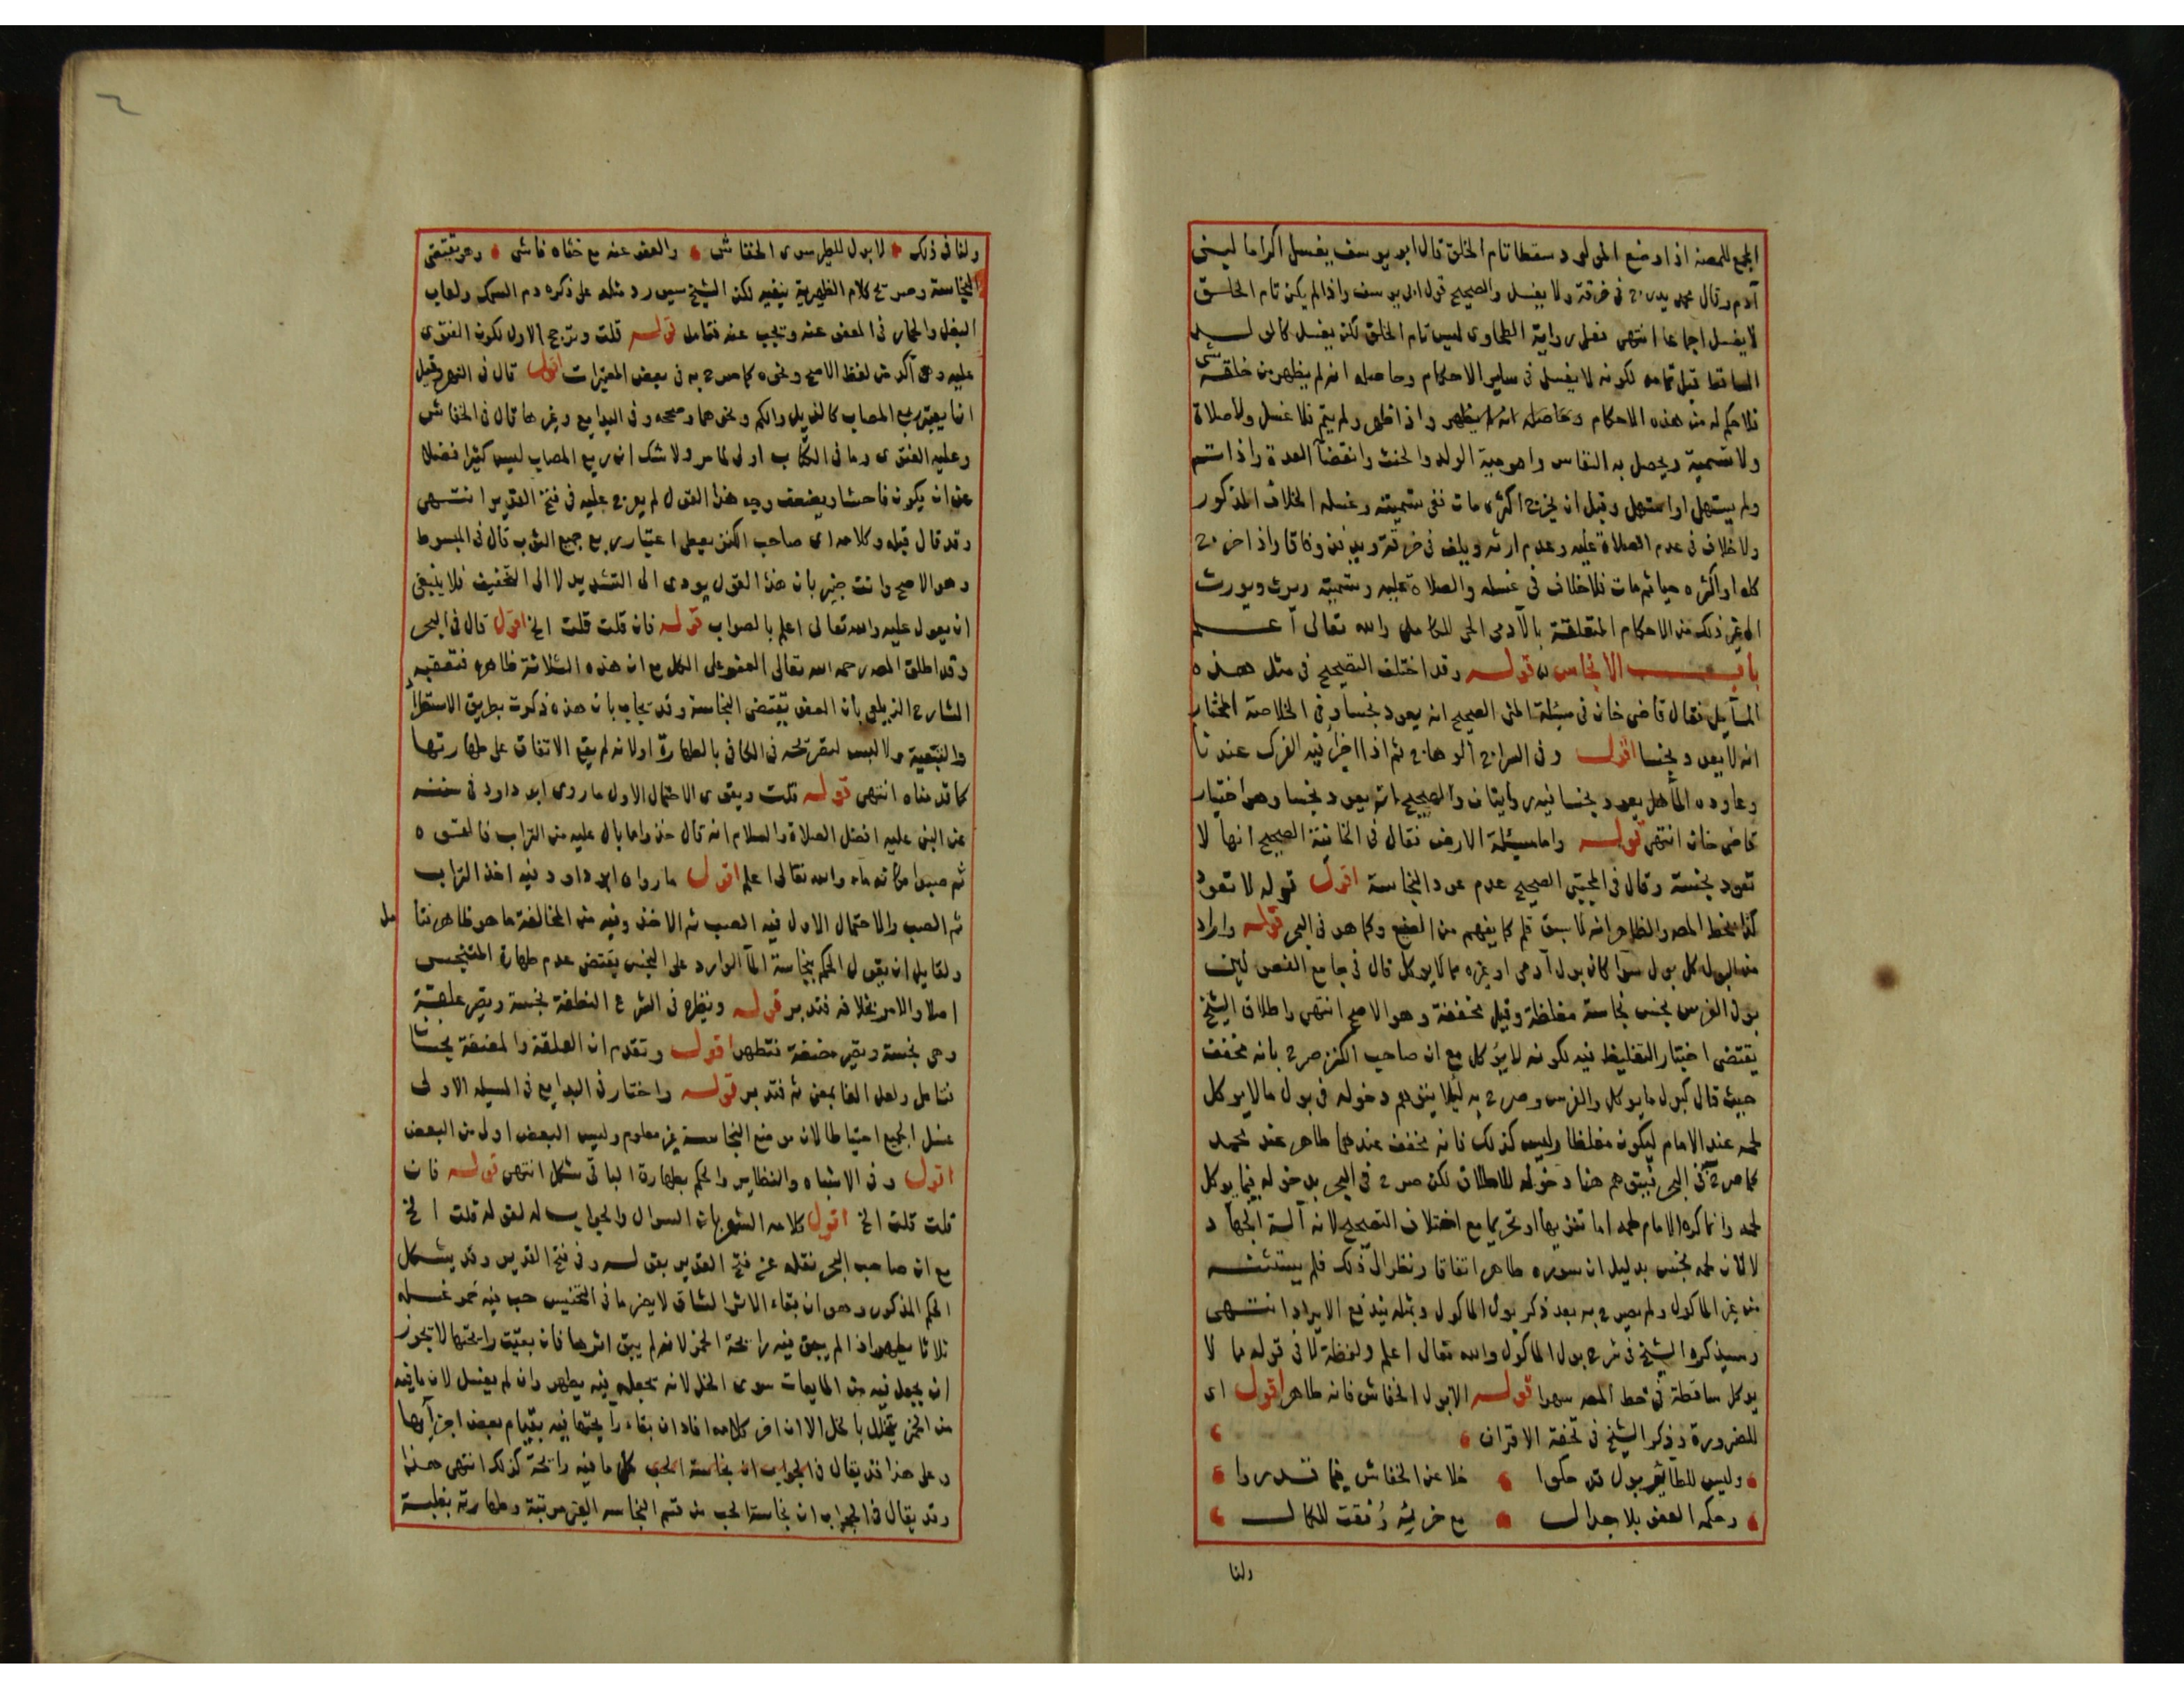 المجمع للمصنف اذا وضع المولود سقطا تام الخلق قال ابو يوسف يغسل اكراما لبنى
آدم وقال محمد يدرج فى خرقة ولا يغسل والصحيح قول ابى يوسف واذا لم يكن تام الخلق
لا يغسل اجماعا انتهى فعلى رواية الطحاوى ليس تام الخلق لكن يغسل
الساقط قبل تمامه لكونه لا يغسل فى ساير الاحكام وحاصله انه لم يظهر من خلقه شى
فلا حكم له من هذه الاحكام وحاصله انه لم يظهر واذا ظهر ولم يتم فلا غسل ولا صلاة
ولا تسمية ويحصل به النفاس وامومية الولد والحنث وانقضآ العدة واذا استتم
ولم يستهل او استهل وقبل ان يخرج اكثره مات ففى تسميته وغسله الخلاف المذكور
ولا خلاف فى عدم الصلاة عليه وعدم ارثه ويلف فى خرقة ويدفن وفاقا واذا خرج
كله او اكثره حيا ثم مات فلا خلاف فى غسله والصلاة عليه وتسميته ويرث ويورث
الى غير ذلك من الاحكام المتعلقة بالآدمى الحى الكامل والله تعالى آعلم
باب الانجاس قوله وقد اختلف التصحيح فى مثل هذه
المسآيل فقال قاضى خان فى مسئلة المنى الصحيح انه يعود نجسا وفى الخلاصة المختار
انه لا يعود نجسا اقول وفى السراج الوهاج ثم اذا اجزأ فيه الفرك عندنا
وعاوده المآ هل يعود نجسا فيه روايتان والصحيح انه يعود نجسا وهو اختيار
قاضى خان انتهى قوله واما مسئلة الارض فقال فى الخانية الصحيح انها لا
تعود نجسة وقال فى المجتبى الصحيح عدم عود النجاسة اقول قوله لا تعود
كذا بخط المص والظاهر انه لما سبق قلم كما يفهم من الصنيع وكما هو فى البحر قوله واراد
من البول كل بول سوا كان بول آدمى او غيره مما لا يوكل قال فى جامع الفصولين
بول الفرس نجس نجاسة مغلظة وقيل مخففة وهو الاصح انتهى واطلاق الشيخ
يقتضى اختيار التغليظ فيه لكونه لا يؤكل مع ان صاحب الكنز صرح بانه مخفف
حيث قال كبول ما يوكل والفرس وصرح به ليلا يتوهم دخوله فى بول ما لا يوكل
لحمه عند الامام ليكون مغلظا وليس كذلك فانه مخفف عندهما طاهر عند محمد
كما صرح فى البحر فيتوهم هنا دخوله للاطلاق لكن صرح فى البحر بدخوله فيما يوكل
لحمه وانما كره الامام لحمه اما تنزيها او تحريما مع اختلاف التصحيح لانه آلة الجهاد
لا لان لحمه نجس بدليل ان سوره طاهر اتفاقا ونظرا الى ذلك فلم يستثنه
من غير الماكول ولم يصرح به بعد ذكر بول الماكول وبمثله يندفع الايراد انتهى
وسيذكره الشيخ فى شرح بول الماكول والله تعالى اعلم ولفظة لا فى قوله مما لا
يوكل ساقطة فى خط المص سهوا قوله الا بول الخفاش فانه طاهر اقول اى
للضرورة وذكر الشيخ فى تحفة الاقران
وليس للطائر بول قد حكوا خلا عن الخفاش فيما قد روا
وحكمه العفو بلا جدال مع خرئه للكمال
ولنا
ولنا فى ذلك لا بول للطير سوى الخفاش والعفو عنه مع خثاه فاشى وهو يقتضى
النجاسة وصريح كلام الظهيرية ينفيه لكن الشيخ سيورد مثله على ذكره دم السمك ولعاب
البغل والحمار فى المعفو عنه ويجب عنه فتامل قوله قلت وترجح الاول لكون الفتوى
عليه وهى آكد من لفظ الاصح ونحوه كما صرح به فى بعض المعتبرات اقول قال فى النهر وقيل
انما يعتبر ربع المصاب كالذيل والكم ونحوهما وصححه فى البدايع وغيرها قال فى الحقايق
وعليه الفتوى وما فى الكتاب اولى لما مر ولا شك ان ربع المصاب ليس كثيرا فضلا
عن ان يكون فاحشا ويضعف وجه هذا القول لم يعرج عليه فى فتح القدير انتهى
وقد قال قبله وكلامه اى صاحب الكنز يعطى اعتبار ربع جميع الثوب قال فى المبسوط
وهو الاصح وانت خبير بان هذا القول يودى الى التشديد لا الى التخفيف فلا ينبغى
ان يعول عليه والله تعالى اعلم بالصواب قوله فان قلت قلت الخ اقول قال فى البحر
وقد اطلق المص رحمه الله تعالى العفو على الكل مع ان هذه الثلاثة طاهرة فتعقبه
الشارح الزيلعى بان العفو يقتضى النجاسة وقد يجاب بان هذه ذكرت بطريق الاستطراد
والتبعية ولا لبس لتصريحه فى الكافى بالطهارة اولا لانه لم يقع الاتفاق على طهارتها
كما قدمناه انتهى قوله قلت ويقوى الاحتمال الاول ما روى ابو داود فى سننه
عن النبى عليه افضل الصلاة والسلام انه قال خذوا ما بال عليه من التراب فالقوه
ثم صبوا مكانه ماء والله تعالى اعلم اقول ما رواه ابو داود فيه اخذ التراب
ثم الصب والاحتمال الاول فيه الصب ثم الاخذ وفيه من المخالفة ما هو ظاهر فتا
مل
ولقايل ان يقول الحكم بنجاسة المآ الوارد على النجس يقتضى عدم طهارة المتنجس
اصلا والامر بخلافه فتدبر قوله ونظيره فى الشرع النطفة نجسة وتصير علقة
وهى نجسة وتصير مضغة فتطهر اقول وتقدم ان العلقة والمضغة نجستا
فتامل ولعل الفا بمعنى ثم فتدبر قوله واختار فى البدايع فى المسيلة الاولى
غسل الجميع احتياطا لان موضع النجاسة غير معلوم وليس البعض اولى من البعض
اقول وفى الاشباه والنظاير والحكم بطهارة الباقى مشكل انتهى قوله فان
قلت قلت الخ اقول كلامه السؤال والجواب له لقوله قلت الخ
مع ان صاحب البحر نقله عن فتح القدير بقوله وفى فتح القدير وقد يشكل
الحكم المذكور وهو ان بقاء الاثر الشاق لا يضر ما فى التجنيس حب فيه خمر غسله
ثلاثا يطهر اذا لم يبق فيه رائحة الخمر لانه لم يبق اثرها فان بقيت رائحتها لا يجوز
ان يجعل فيه من المايعات سوى الخل لانه بجعله فيه يطهر وان لم يغسل لان ما فيه
من الخمر يتخلل بالخل الا ان اخر كلامه افاد ان بقاء رائحتها فيه بقيام بعض اجزآيها
وعلى هذا قد يقال فى الجواب ان نجاسة الحب كل ما فيه رائحة كذلك انتهى هذا
وقد يقال فى الجواب ان نجاسة الحب من قسم النجاسه الغير مرتبة وطهارته بغلبة